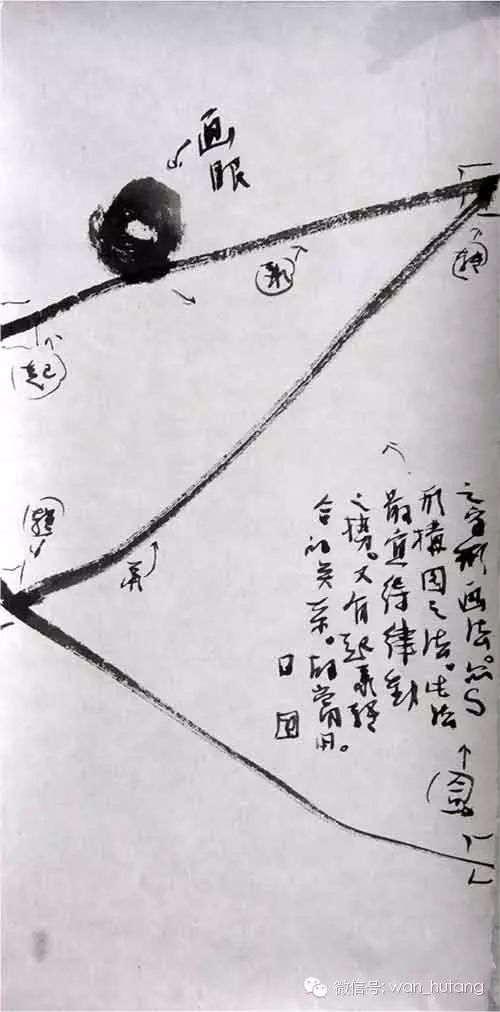 画眼
起
承
转
转
之字形画法。亦S
形构图之法。此法
最宜得律动
之势。又有起承转
合的关系。故常用。
合
微信号: wan_hutang